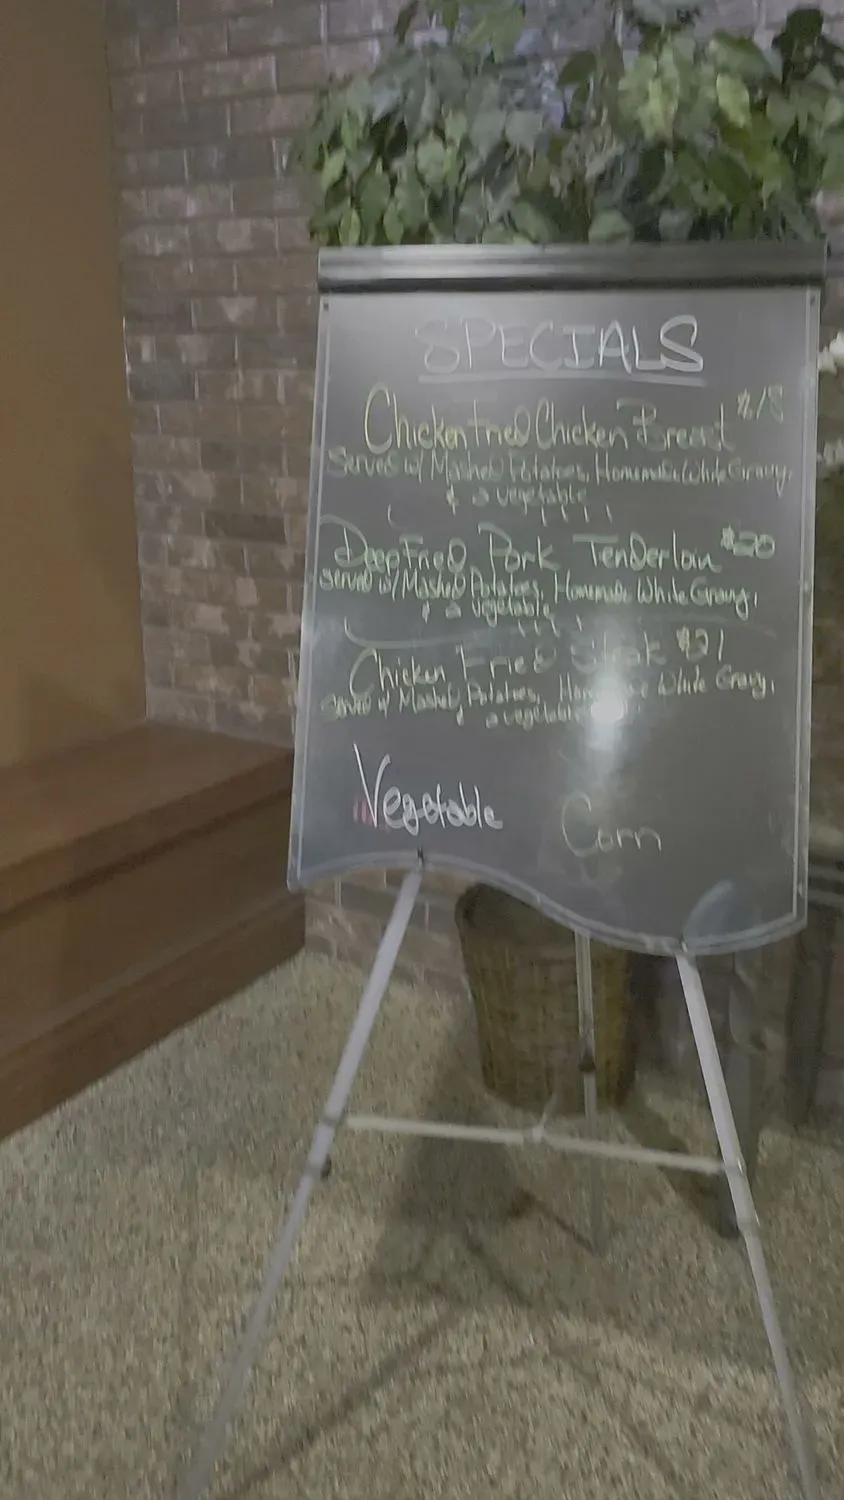 SPECIALS
Chicken Fried Chicken Breast $18
Served w/ Mashed Potatoes, Homemade White Gravy,
& a vegetable
Deep Fried Pork Tenderloin $20
Served w/ Mashed Potatoes, Homemade White Gravy,
& a vegetable
Chicken Fried Steak $21
Served w/ Mashed Potatoes, Homemade White Gravy,
& a vegetable
Vegetable Corn